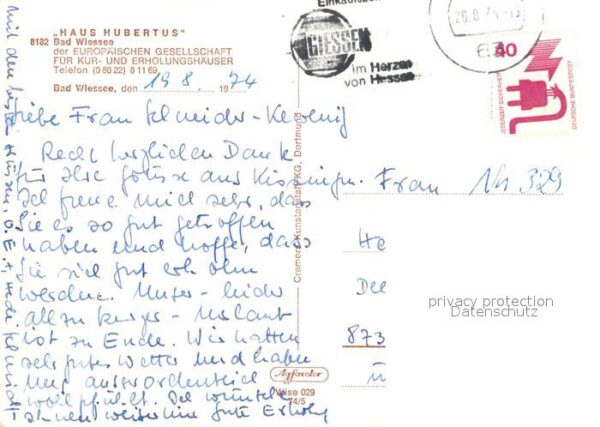 „HAUS HUBERTUS"
8182 Bad Wiessee
der EUROPÄISCHEN GESELLSCHAFT
FÜR KUR- UND ERHOLUNGSHÄUSER
Telefon (0 80 22) 8 11 69
Bad Wiessee, den 19 8. 1974
Liebe Frau Schneider-
Recht herzlichen Dank
für Ihre Grüsse aus Kissingen.
Ich freue mich sehr, dass
Sie es so gut getroffen
haben und hoffe, dass
Sie sich gut erholen
werden. Unser - leider
allzu kurzer - Urlaub
ist zu Ende. Wir hatten
sehr gutes Wetter und haben
uns ausserordentlich
wohl gefühlt. Ich wünsche
Ihnen weiterhin gute Erholung
mit den besten Grüssen, a. E. +
Cramers Kunstanstalt KG, Dortmund
Agfacolor
Wise 029
74/5
GIESSEN
im Herzen
von Hessen
20.8.74-15
40
JEDERZEIT SICHERHEIT
DEUTSCHE BUNDESPOST
Frau
329
He
Dee
873
privacy protection
Datenschutz